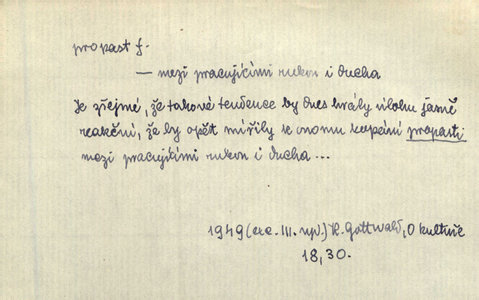 propast f.
— mezi pracujícími rukou i ducha
Je zřejmé, že takové tendence by dnes hrály úlohu jasně
reakční, že by opět mířily k onomu kopání propasti
mezi pracujícími rukou i ducha ...
1949 (exc. III. vyd.) K. Gottwald, O kultuře
18, 30.